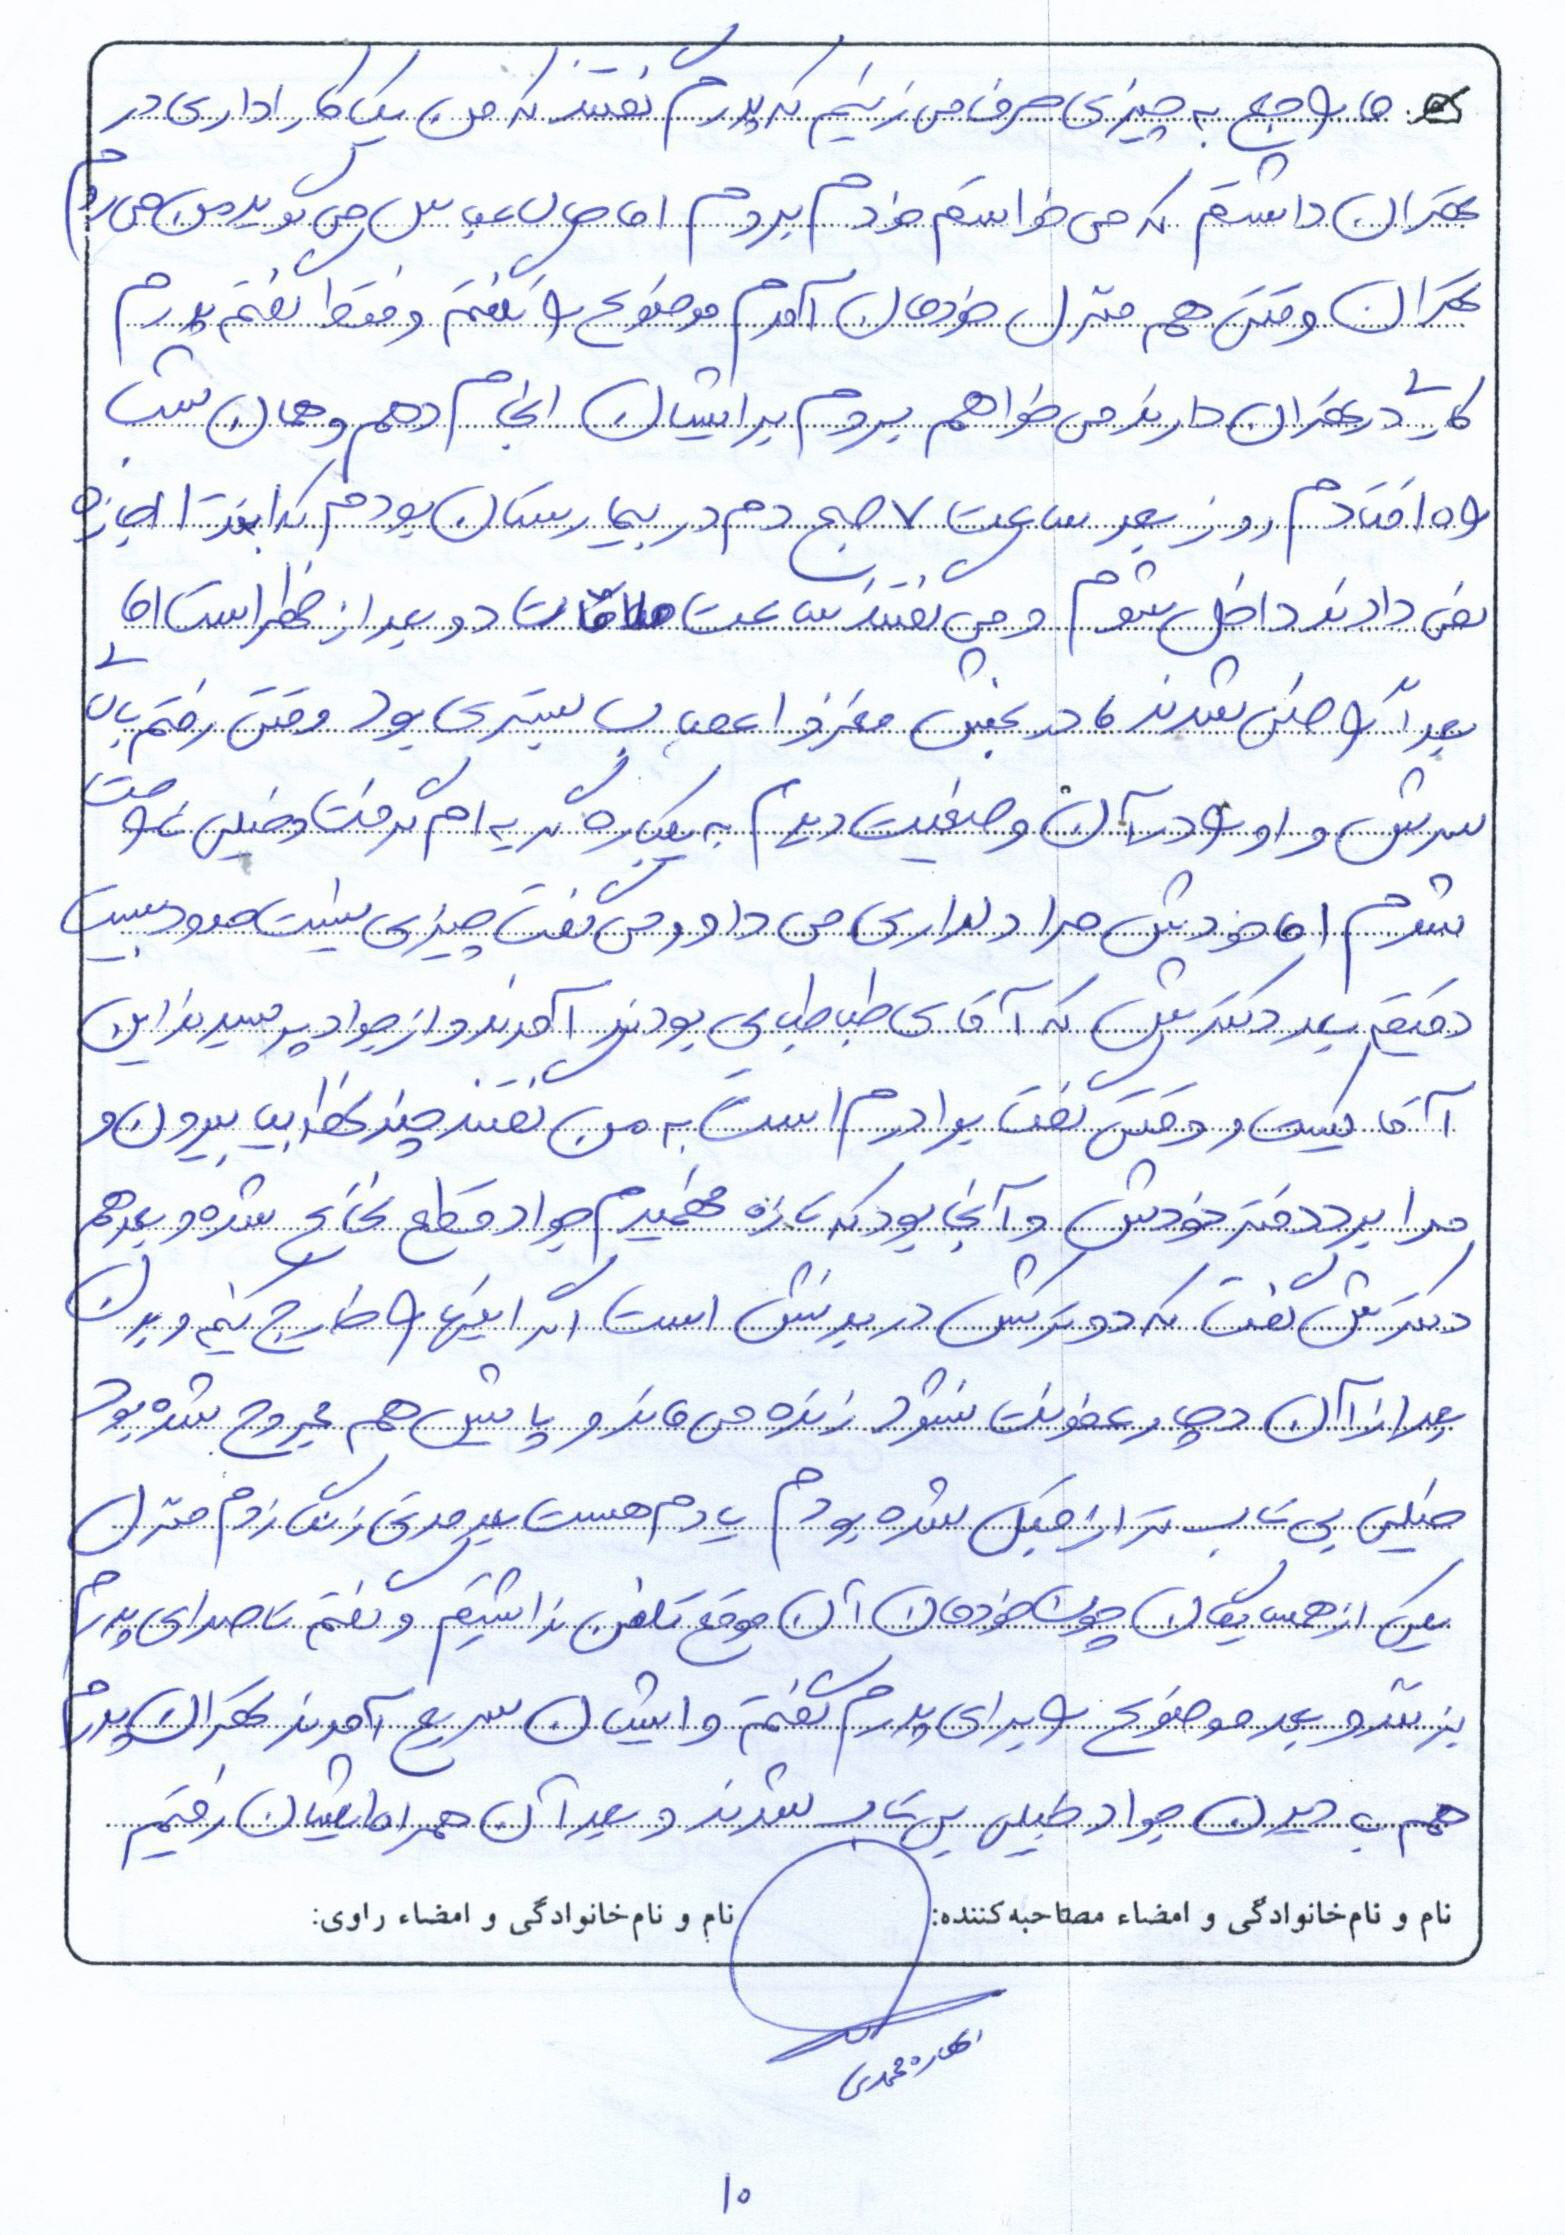 که ما راجع به چیزی حرف می زنیم که پدرم گفتند که من یک کار اداری در
تهران داشتم که می خواستم خودم بروم اما حالا عباس می گوید من می روم
تهران وقتی هم منزل خودمان آمدم موضوع را نگفتم و فقط گفتم پدرم
کاری در تهران دارند می خواهم بروم برایشان انجام دهم و همان شب
راه افتادم روز بعد ساعت ۷ صبح دم در بیمارستان بودم که ابتدا اجازه
نمی دادند داخل شوم و می گفتند ساعت ملاقات دو بعد از ظهر است اما
بعداً راضی شدند ما در بخش مغز و اعصاب بستری بود وقتی رفتم بالای
سرش و او را در آن وضعیت دیدم به یکباره گریه ام گرفت و خیلی ناراحت
شدم اما خودش مرا دلداری می داد و می گفت چیزی نیست حدود بیست
دقیقه بعد دکترش که آقای طباطبایی بودند آمدند و از جواد پرسیدند این
آقا کیست و وقتی گفت برادرم است به من گفتند چند لحظه بیا بیرون و
مرا برد دفتر خودش و آنجا بود که تازه فهمیدم جواد قطع نخاع شده و بعد هم
دکترش گفت که دو ترکش در بدنش است اگر اینها را خارج کنیم و بدن
بعد از آن دچار عفونت نشود زنده می ماند و پایش هم مجروح شده بود
خیلی بی تاب تر از قبل شده بودم یادم هست بعد مدتی زنگ زدم منزل
یکی از همسایگان چون خودمان آن موقع تلفن نداشتیم و گفتم تا صدای پدرم
بزنند و بعد موضوع را برای پدرم گفتم و ایشان سریع آمدند تهران پدرم
هم با دیدن جواد خیلی بی تاب شدند و بعد آن همراه ایشان رفتیم
نام و نام‌خانوادگی و امضاء مصاحبه‌کننده: نام و نام‌خانوادگی و امضاء راوی:
محمدی
۱۰